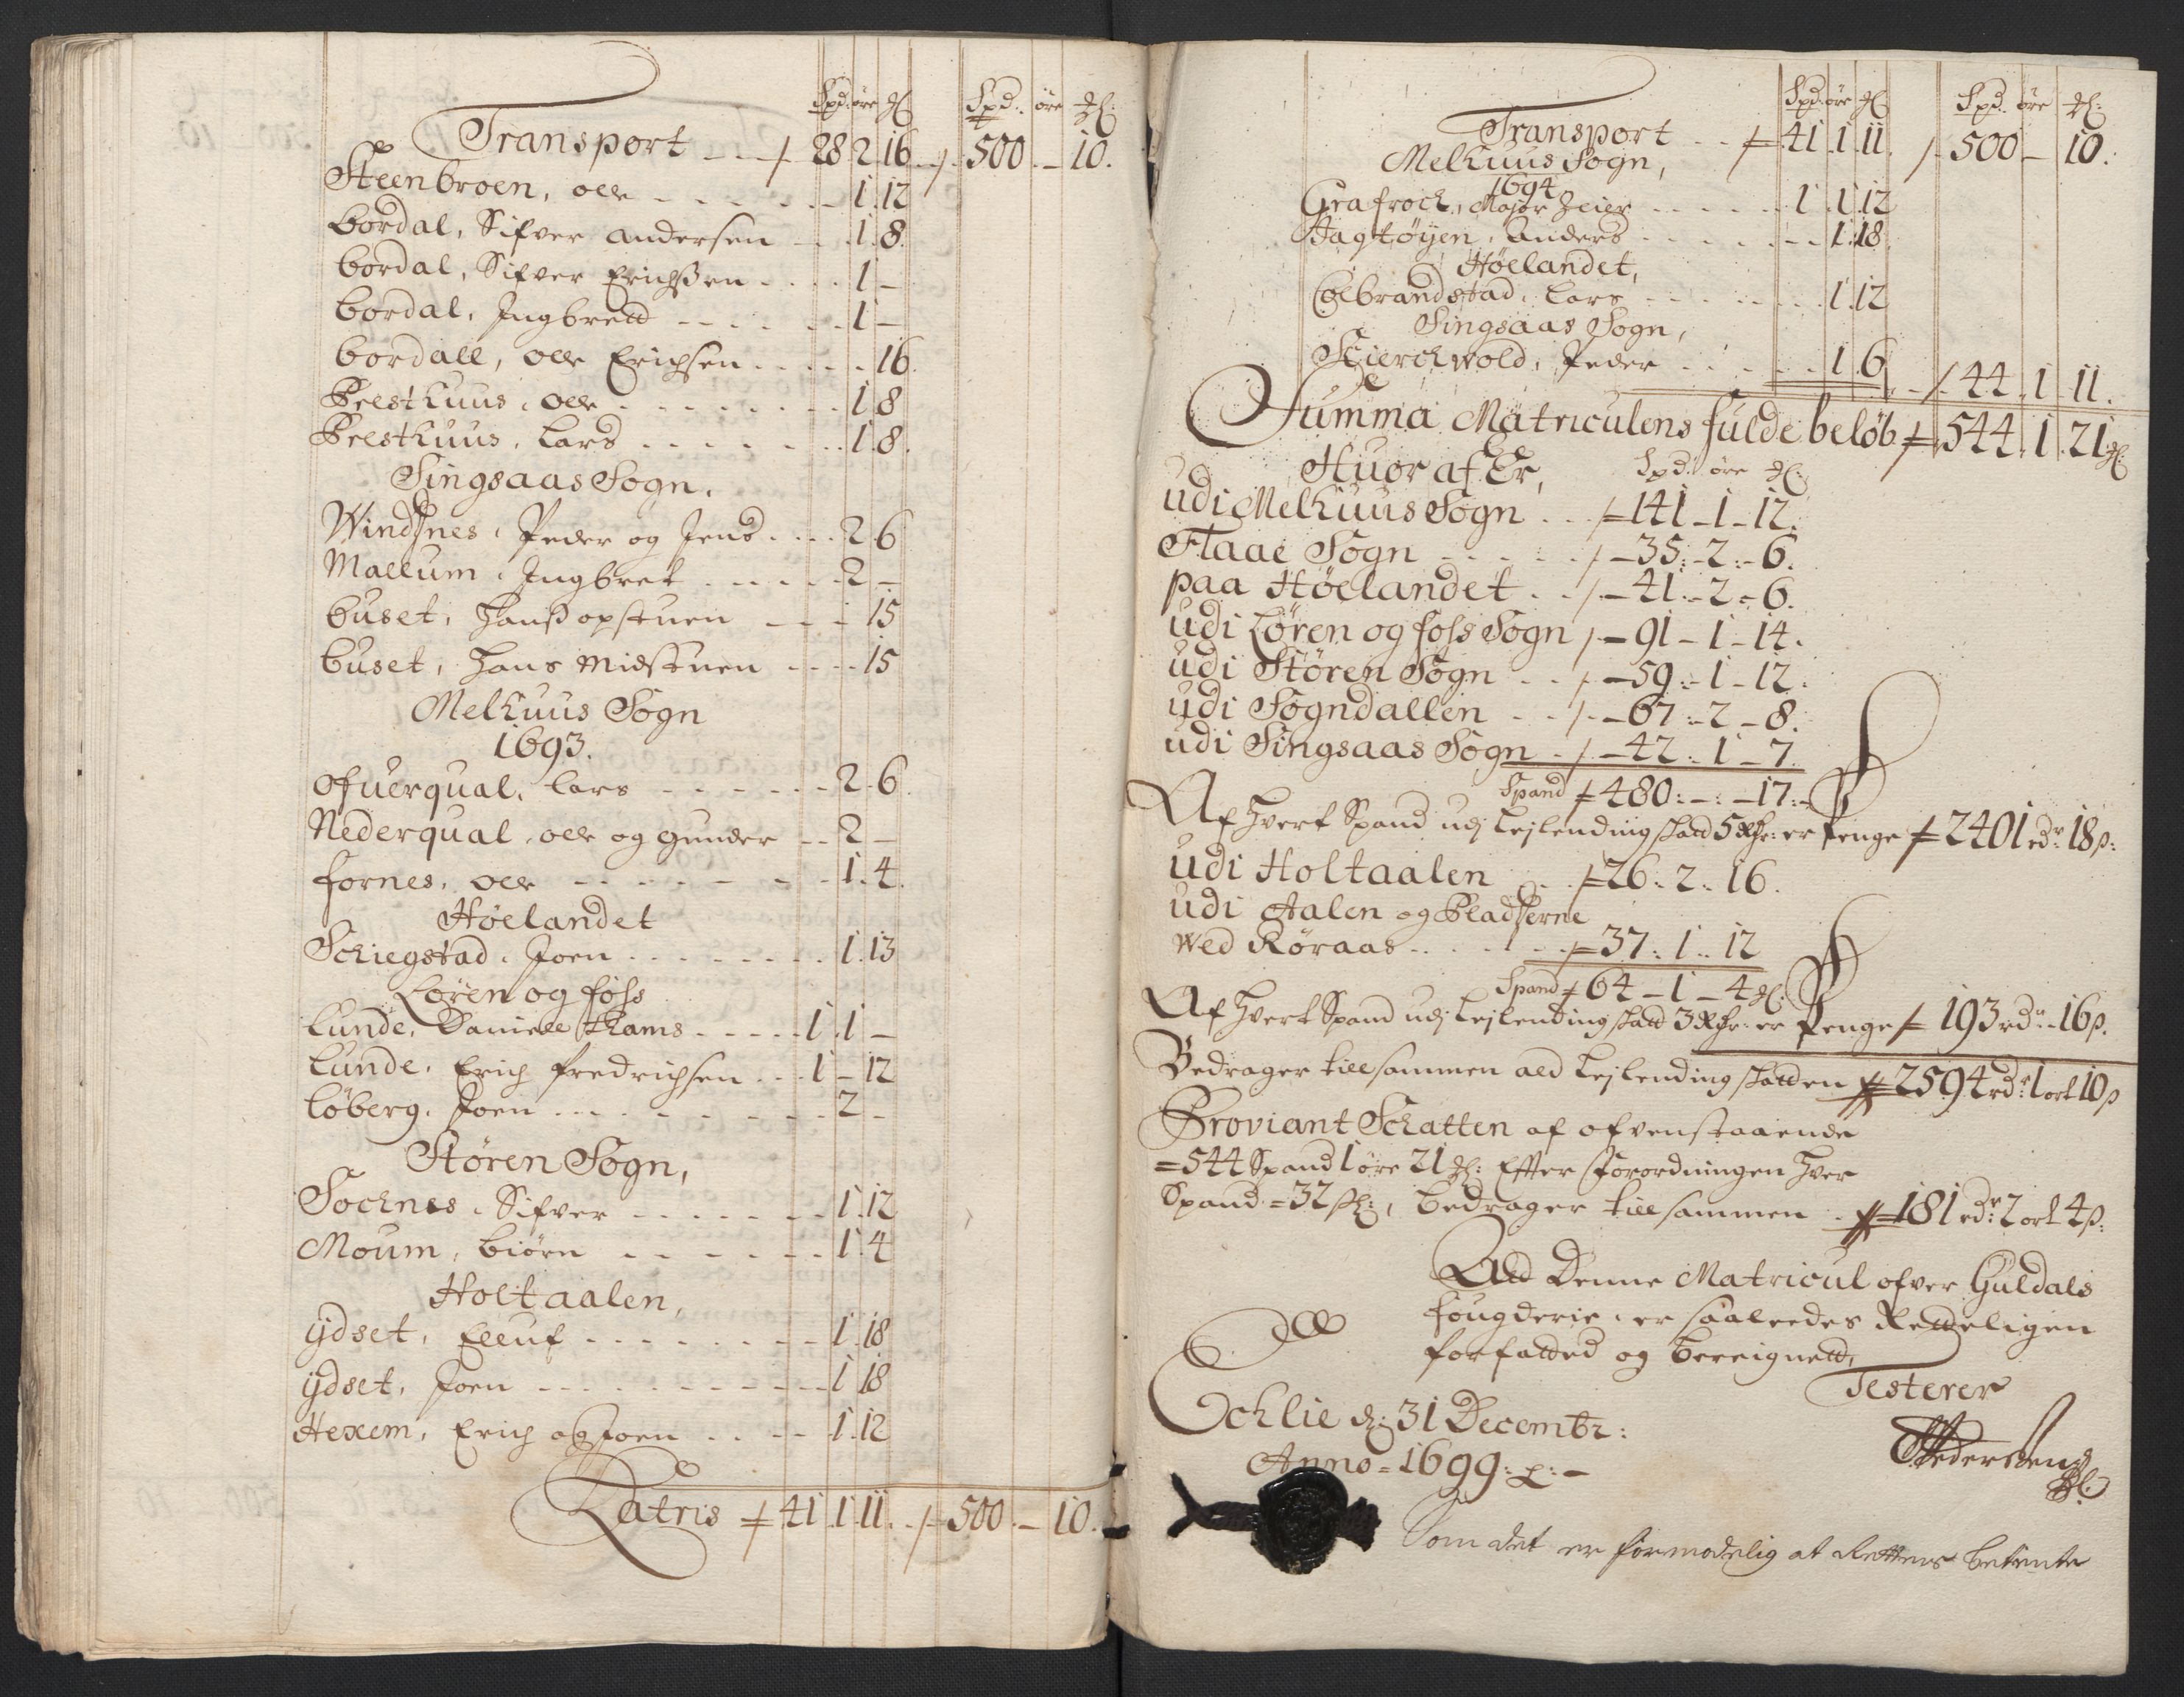 Spd: öre
Spd: öre
Transport - - - 28 2 16 - 500 - 10.
Steenbroen, Olle - - - - - 1 12
Bordal, Sifver Andersen - - 1 8.
Bordal, Sifver Erichssen - - - 1 -
Bordal, Ingbrett - - - - - 1 -
Bordall, Olle Erichsen - - - - 16.
Presthuus, Olle - - - - - 1 8
Presthuus, Lars - - - - - 1 8.
Singsaas Sogn,
Windsnes, Peder og Jens - - - 2 6
Mallum, Ingbret - - - - - 2 -
Buset, Hanss opstuen - - - 15
Buset, Hans Midstuen - - - - 15
Melhuus Sogn
1693.
Ofuerqual, Lars - - - - - 2 6.
Nederqual, Olle og Gunder - - 2 -
Fornes, Olle - - - - - - 1 4.
Höelandet
Schiegstad, Joen - - - - - 1 13
Lören og Foss
Lunde, Daniell Thams - - - - 1 1 -
Lunde, Erich Fredrichsen - - 1 - 12
Löberg, Joen - - - - - - 2 -
Stören Sogn,
Sochnes, Sifver - - - - - - 1 12
Moum, Biörn - - - - - - 1 4
Holtaalen,
Ydset, Elluf - - - - - - 1 18
Ydset, Joen - - - - - - - 1 18
Hexem, Erich og Joen - - - - 1 12
Latris 41 1 11. - 500 - 10.
Spd: öre
Spd: öre
Transport - - 41 1 11. 500 - 10.
Melhuus Sogn,
1694
Grafroch, Major - - - - - 1 1 12
Jagtöyen, Anders - - - - - 1 18
Höelandet,
Colbrandstad, Lars - - - - - 1 12
Singsaas Sogn,
Kierchwold, Peder - - - - - 1 6 - 44 1 11.
Summa Matriculens fulde beløb 544 1 21
Huor af Er, Spd: öre
udi Melhuus Sogn - - 141 - 1 - 12.
Flaae Sogn - - - - - 35 : - 2 : - 6.
paa Höelandet - - - 41 - 2 - 6.
udi Lören og foss Sogn - 91 - 1 - 14.
udi Stören Sogn - - - 59 : - 1 - 12.
udi Sogndallen - - - 67 : - 2 - 8.
udi Singsaas Sogn - - 42 : 1 - 7.
Spand 480 : - : - 17 : -
Af hvert Spand udj Lejlending skatt 5 er Penge 2401 rdr 18 s:
udi Holtaalen - - 26 : 2 : 16.
udi Aalen og Pladserne
wed Röraas - - - - - 37 : 1 - 12
Spand 64 - 1 - 4
Af hvert Spand udj Lejlending skatt 3 er Penge 193 rdr - 16 s.
Bedrager tillsammen all Lejlending skatten 2594 rdr 1 ort 10 s
Proviant Schatten af ofvenstaaende
= 544 Spand 1 öre 21 Effter Forordningen hver
Spand = 32 , bedrager tillsammen - 181 rdr 2 ort 4 s:
Att Denne Matricul ofver Guldals
fougderie, er saaleedes Retteligen
forfatted og bereignett,
Testerer
Ochlie d: 31 Decembr:
Anno = 1699 : -
Som det er formodelig at Rettens betiente